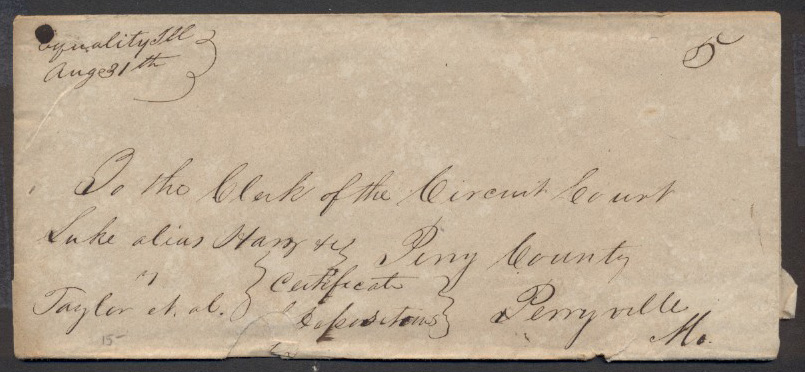 Equality Ill
Aug 31th
5
To the Clerk of the Circuit Court
Luke alias Harry &c Perry County
vs Certificate
Taylor et. al. Depositions Perryville
Mo.
15-